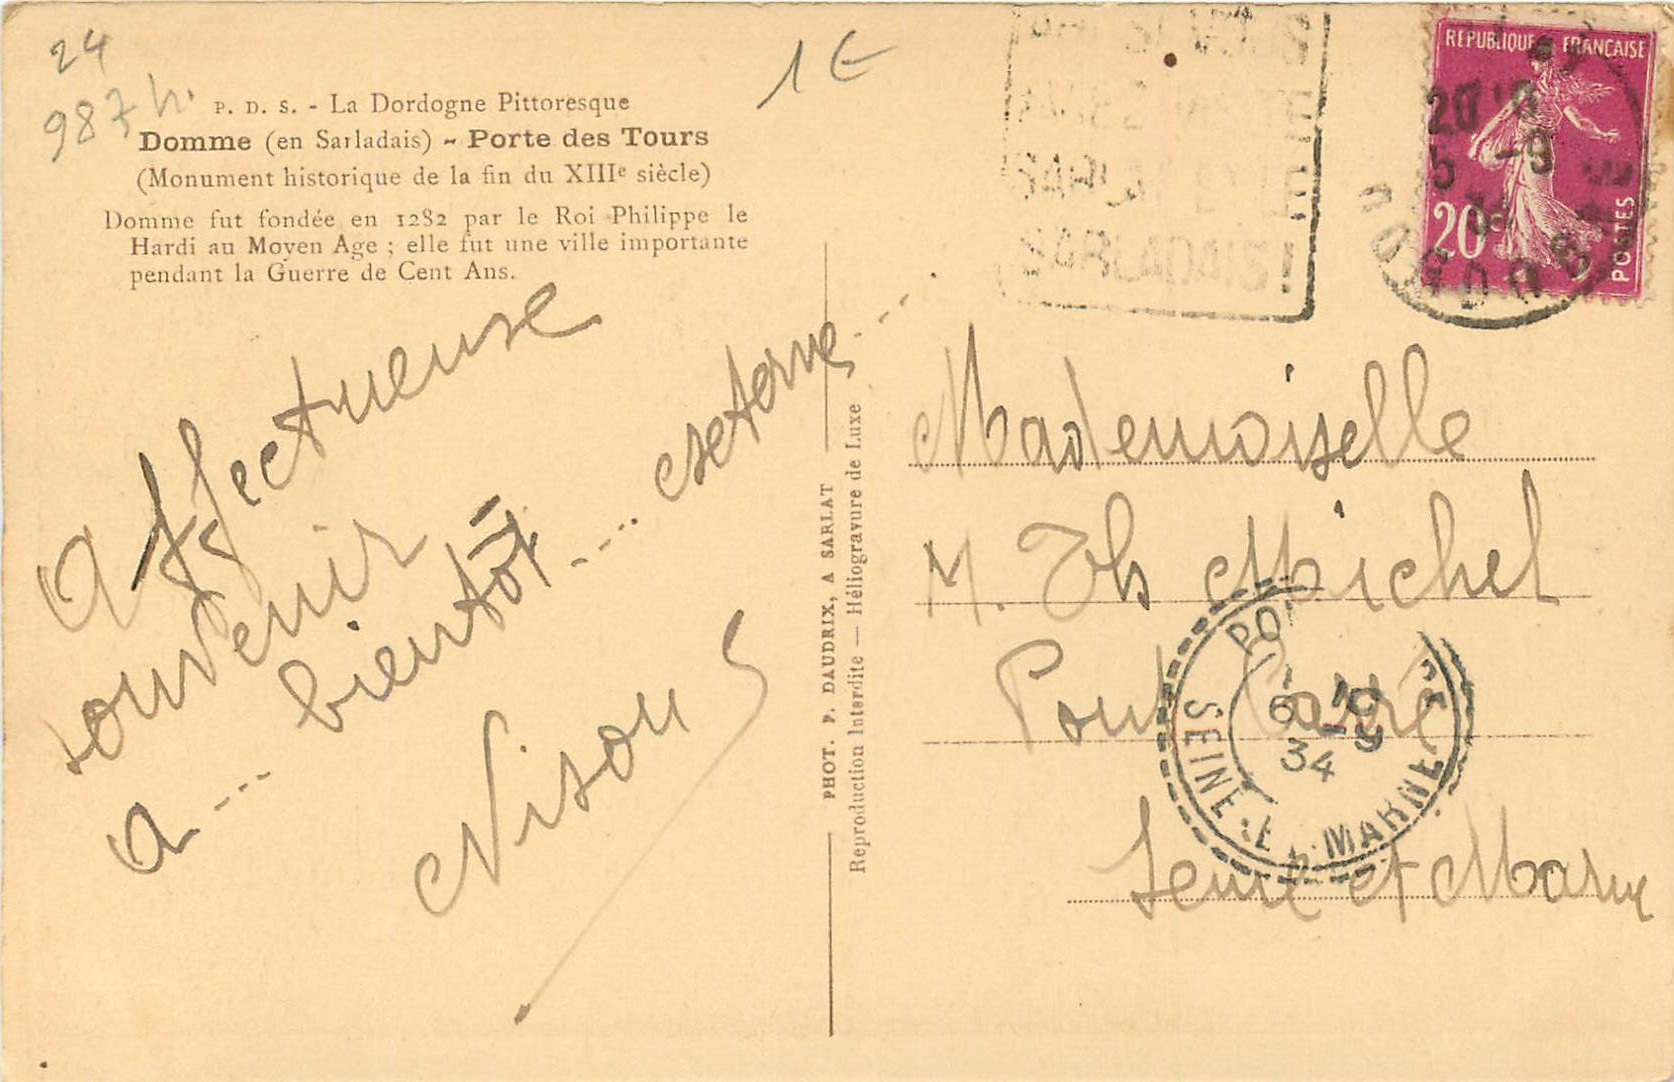 24
987 h.
1€
P. D. S. - La Dordogne Pittoresque
Domme (en Sarladais) - Porte des Tours
(Monument historique de la fin du XIIIe siècle)
Domme fut fondée en 1282 par le Roi Philippe le
Hardi au Moyen Age ; elle fut une ville importante
pendant la Guerre de Cent Ans.
Affectueuse
souvenir
a --- bientôt ---
Nison
PHOT. P. DAUDRIX, A SARLAT
Reproduction Interdite — Héliogravure de Luxe
SARLADAIS !
REPUBLIQUE FRANÇAISE
20c
POSTES
20
5 -9
DORDOGNE
Mademoiselle
M. Th Michel
Pont Carré
Seine et Marne
PO
6 -9
34
SEINE-ET-MARNE